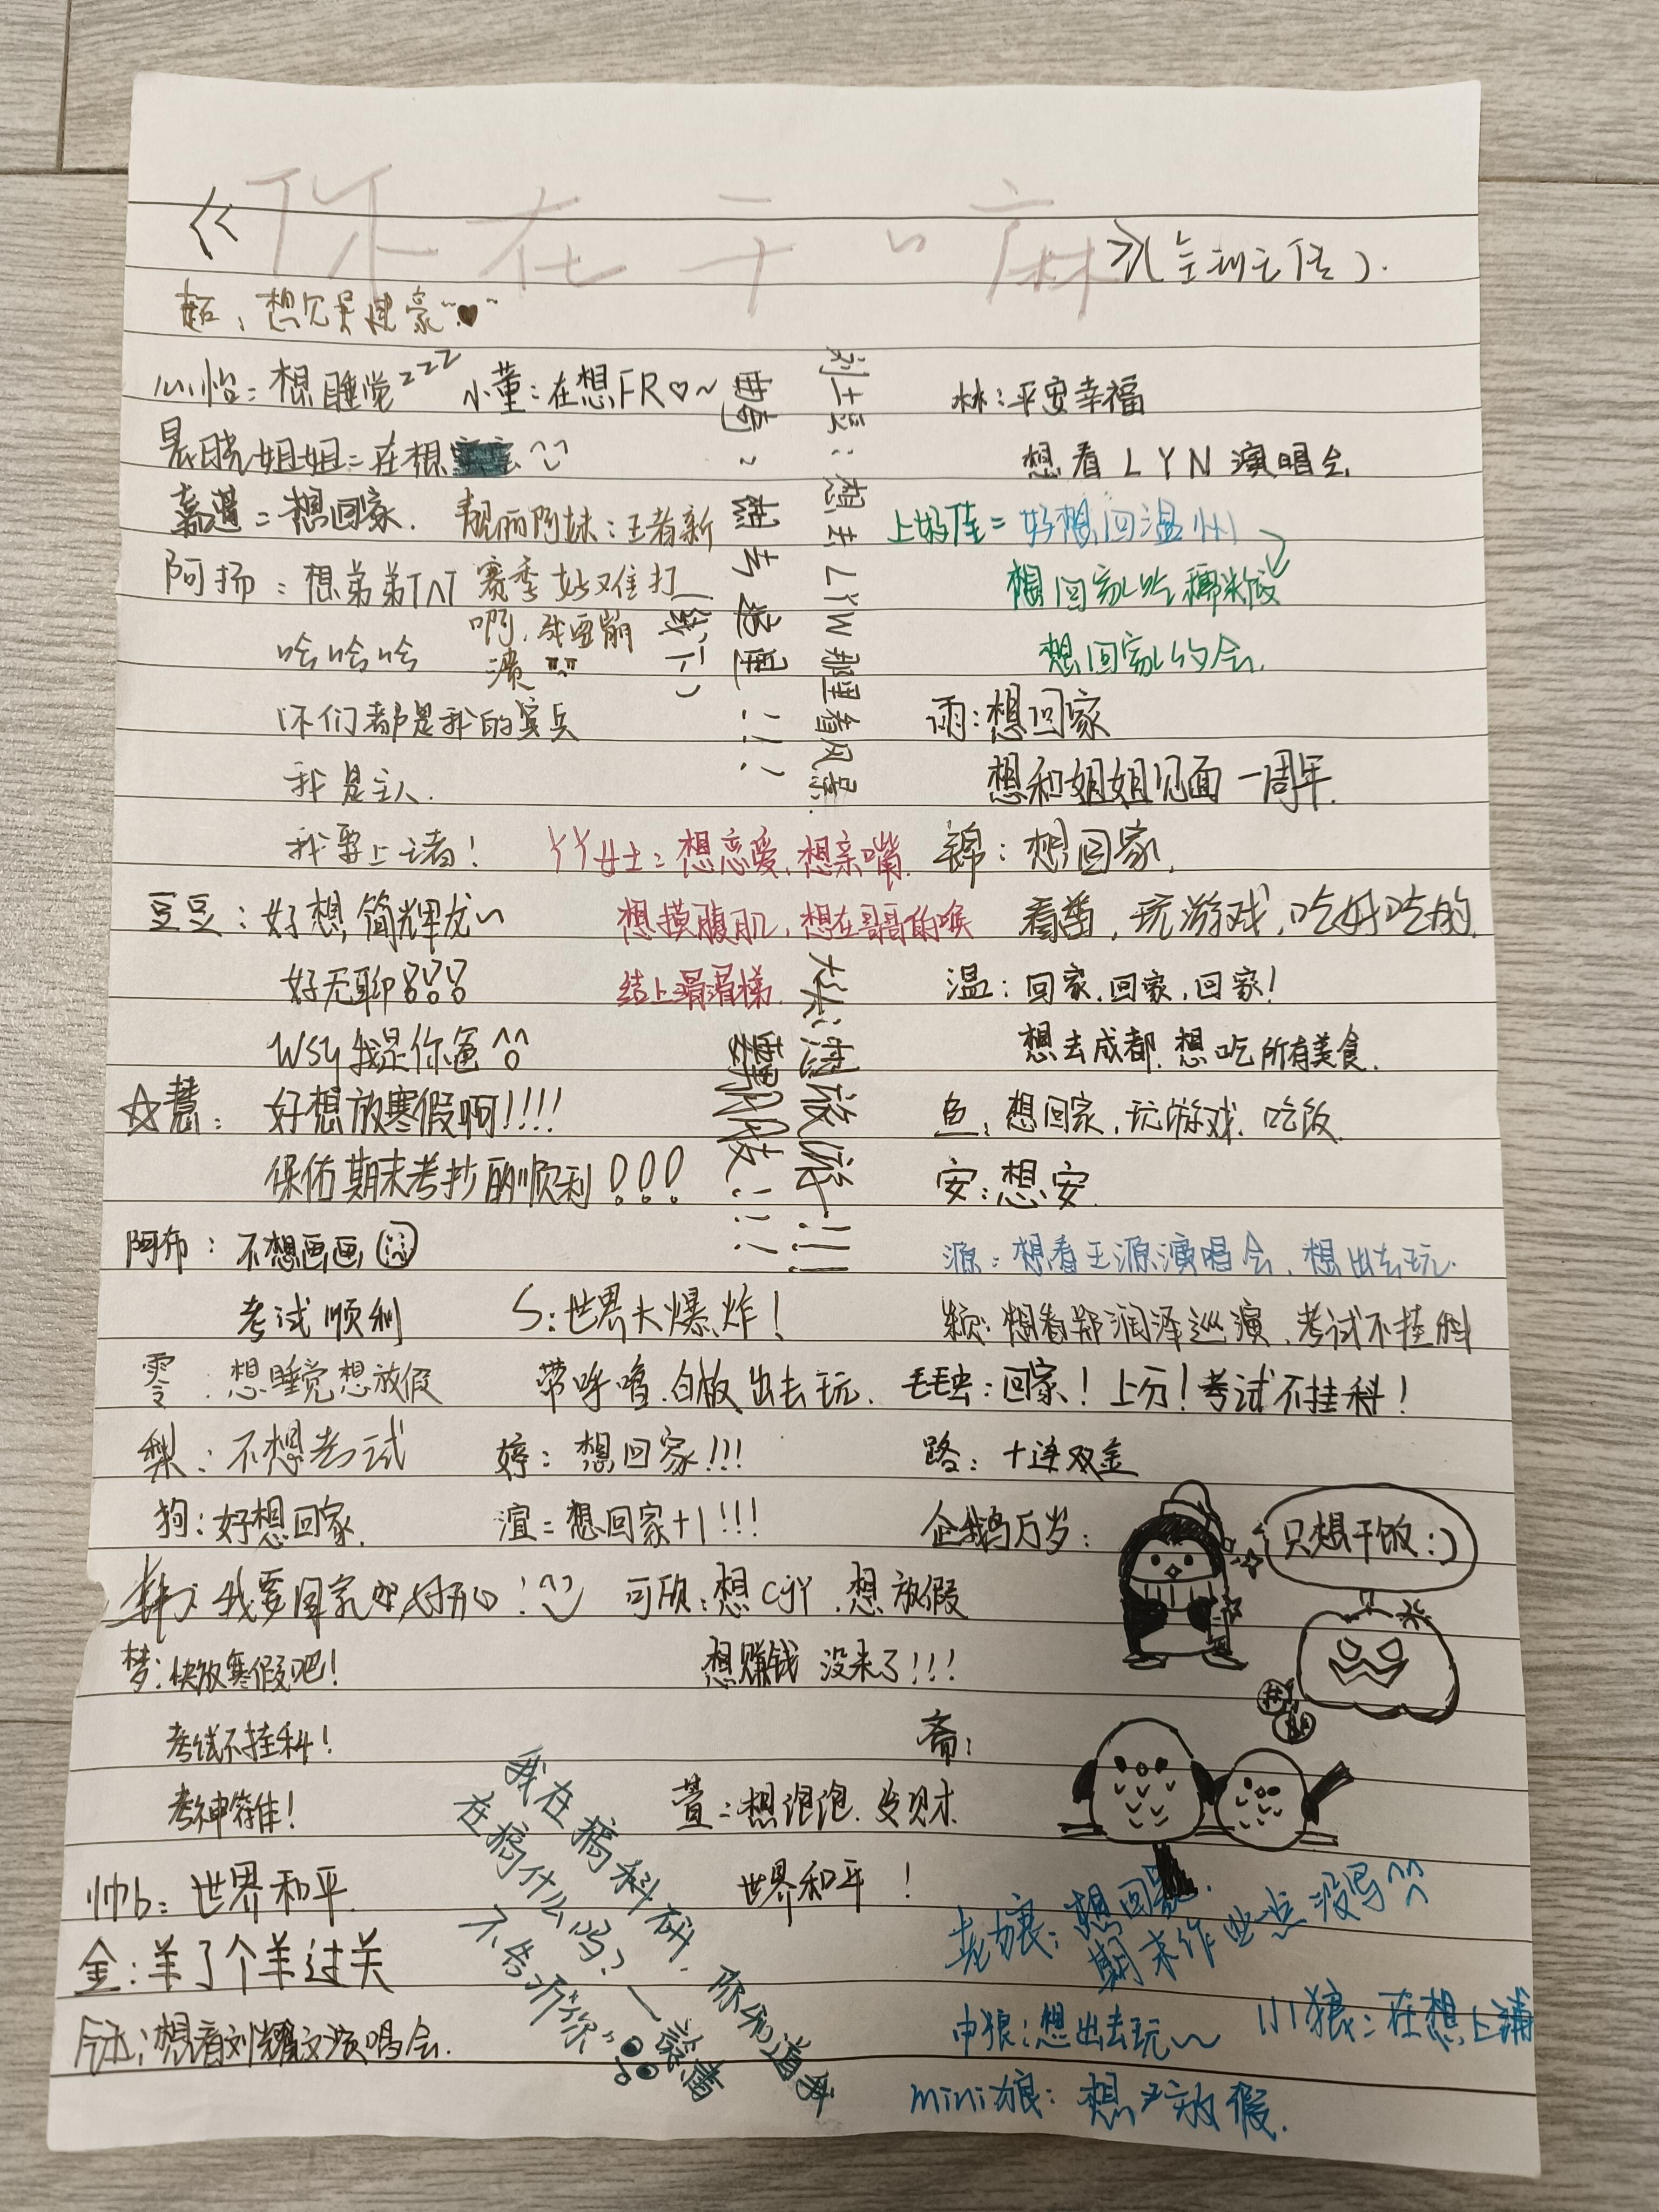 《你在干嘛》
心怡：想睡觉zzz
小董：在想FR♡~
晨晓姐姐：在想
想回家.
靓丽阿妹：王者新
赛季好难打
啊，我要崩
溃
阿扬：想弟弟TNT
哈哈哈
你们都是我的宾兵
我是主人.
我要上诸！
豆豆：好想简辉龙~
好无聊
WSY我是你爸
☆慧：好想放寒假啊!!!!
保佑期末考抄的顺利!!!
阿布：不想画画
考试顺利
零：想睡觉想放假
梨：不想考试
狗：好想回家.
我要回家
梦：快放寒假吧！
考试不挂科！
考神
帅b：世界和平.
金：羊了个羊过关
想看刘耀文演唱会.
追星!!!
(线下)
刘土豆：想去LYW那里看风景.
丫丫女士：想恋爱，想亲嘴.
想摸腹肌，想在哥哥的喉
结上滑滑梯.
想放假!!!
S：世界大爆炸！
带哆啰.白板出去玩.
婷：想回家!!!
渲：想回家+1!!!
可欣：想cjy.想放假
想赚钱 没来了!!!
萱：想泡泡.发财
世界和平！
我在搞科研，你知道我
在搞什么吗？一
不告诉你
林：平安幸福
想看LYN演唱会
上好佳：好想回温州
想回家吃糯米饭
想回家约会.
雨：想回家
想和姐姐见面一周年.
锦：想回家.
看番，玩游戏，吃好吃的.
温：回家.回家.回家！
想去成都.想吃所有美食.
鱼：想回家，玩游戏.吃饭.
安：想安.
源：想看王源演唱会.想出去玩.
颖：想看郑润泽巡演.考试不挂科
毛毛虫：回家！上分！考试不挂科！
路：十连双金
企鹅万岁：
只想干饭:)
斋：
老狼：想回家.
期末作业一点没写^^
中狼：想出去玩~
小狼：在想上铺
mini狼：想放假.